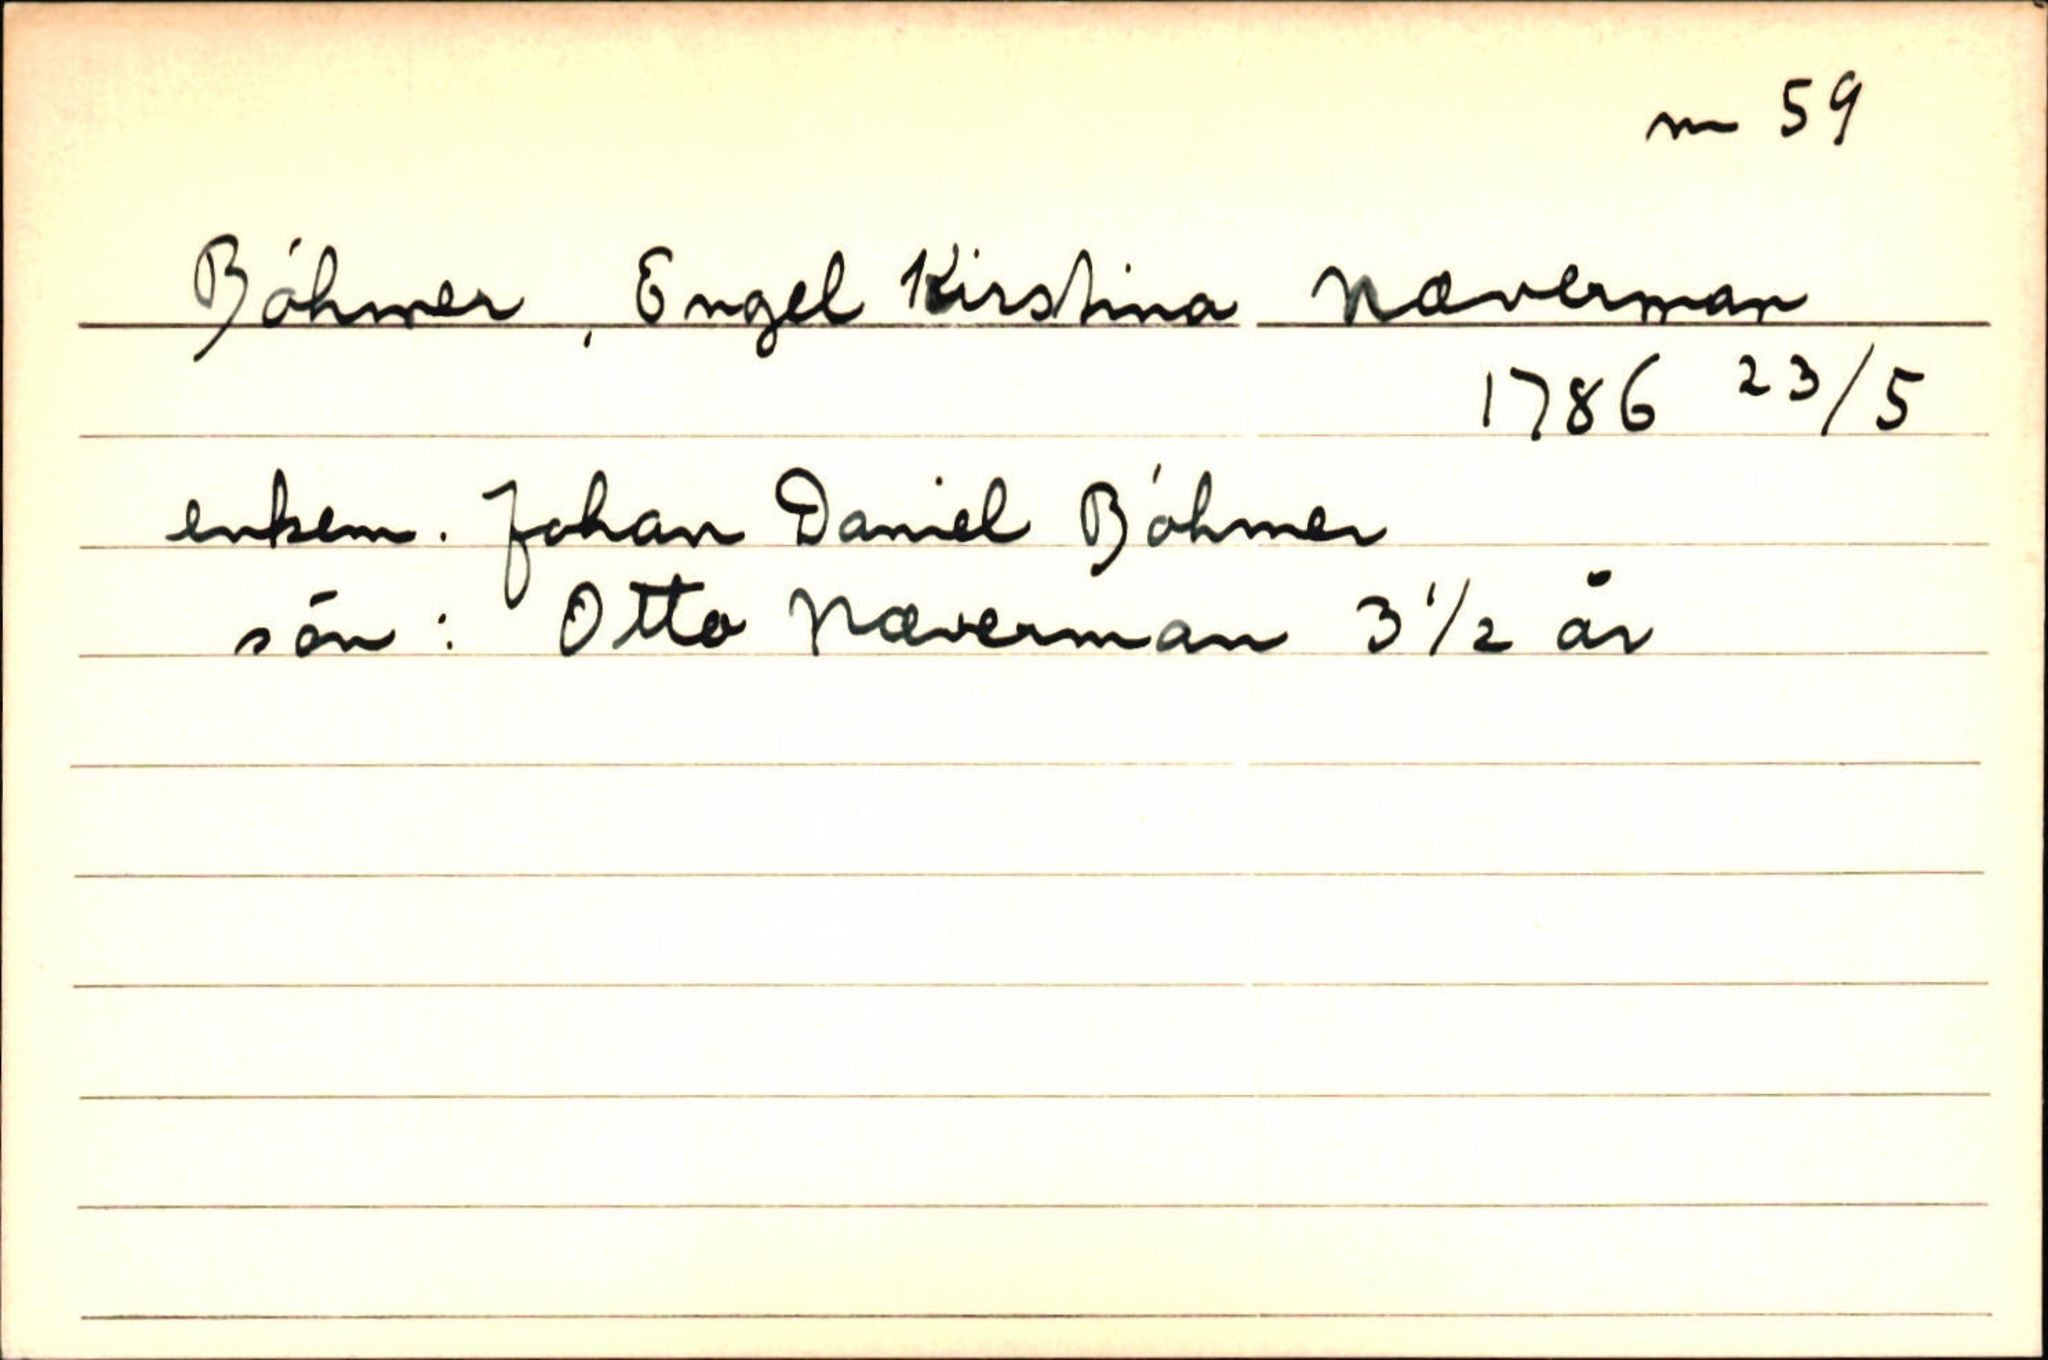 m 59
Böhmer, Engel Kirstina Næverman
1786 23/5
enkem. Johan Daniel Böhmer
sön: Otto Næverman 3 1/2 år